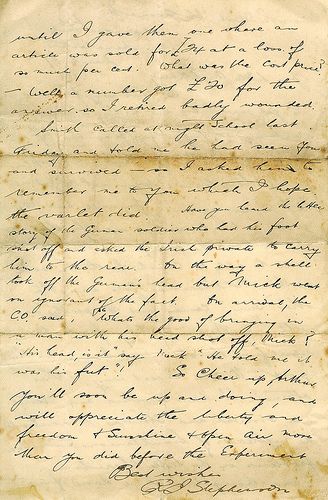 until I gave them one where an
article was sold for £24 at a loss of
so much per cent. What was the cost price?
– Well a number got £30 for the
answer so I retired badly wounded.
Smith called at night School last
Friday and told me he had seen you
and survived – so I asked him to
remember me to you which I hope
the varlet did. Have you heard the latter
story of the German soldier who had his foot
shot off and asked the Irish private to carry
him to the rear. On the way a shell
took off the German's head but Mick went
on ignorant of the fact. On arrival, the
C.O. said, "Whats the good of bringing in
a man with his head shot off, Mick?
"His head, is it" says Mick "He told me it
was his foot"! So Cheer up, Arthur
You'll soon be up and doing, and
will appreciate the liberty and
freedom & Sunshine & open air more
than you did before the Experiment
Best wishes
R J Stephenson